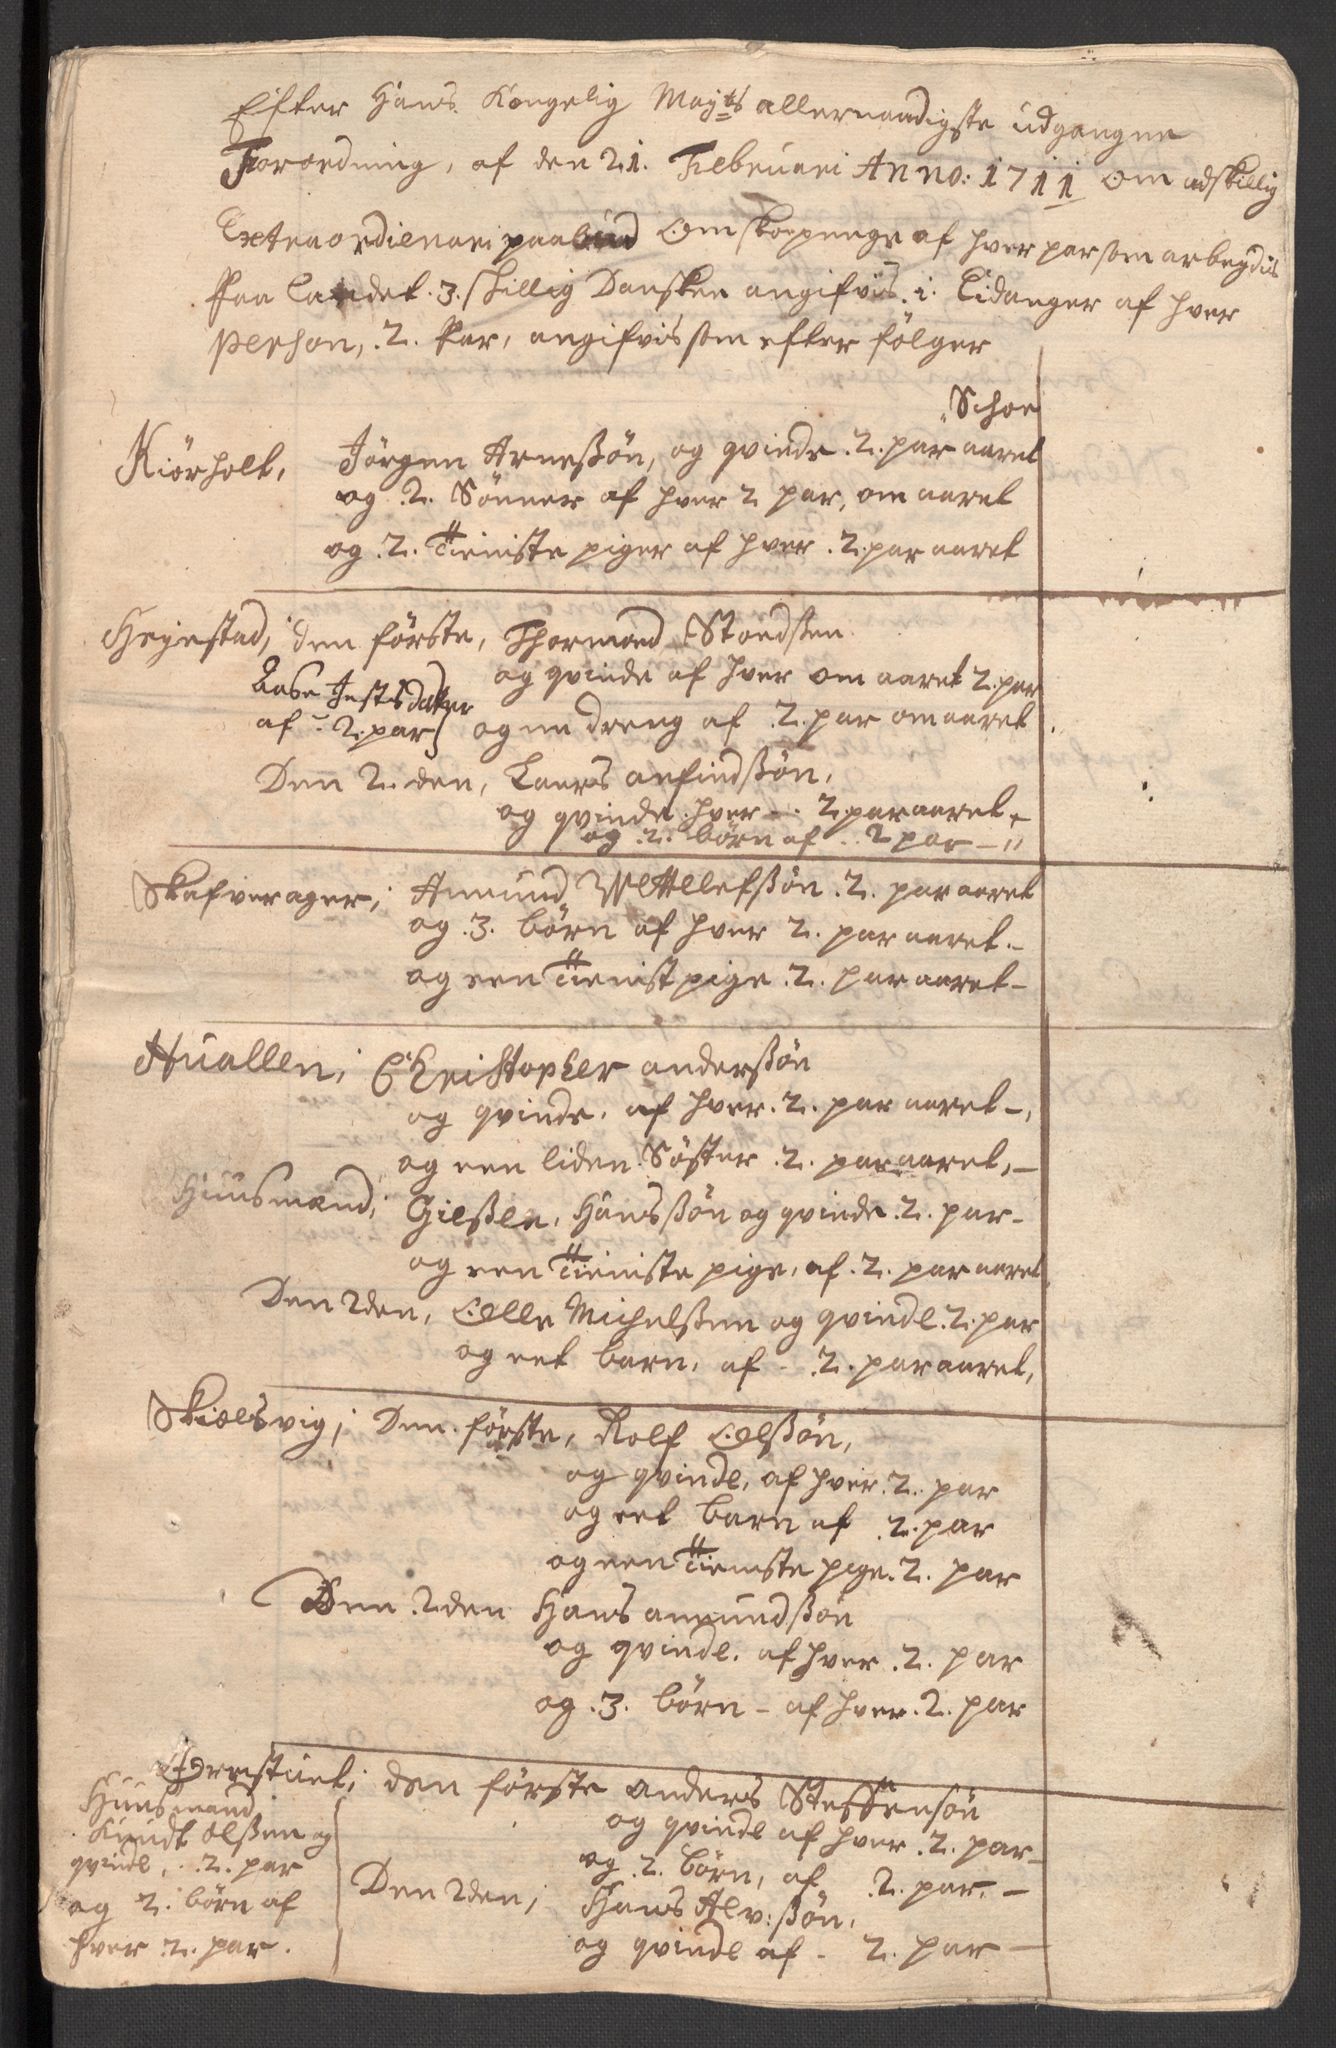 Efter Hans Kongelig Mayts allernaadigste udgangne
Forordning, af den 21. Februari Anno: 1711 om adskillig
Extraordienari paabud Om skoepenge af hver par som arbeydis
Paa Landet. 3. skillig Danske angifvis. i. Eidanger af hver
Person, .2. Par, angifvis som efter fölger
Schoe
Kiörholt, Jörgen Arneßön, og qvinde .2. par aaret
og .2. Sönner af hver 2 par, om aaret
og .2. Tieniste piger af hver .2. par aaret
Heyestad, den förste, Thormoed Stoedsen
og qvinde af hver om aaret 2. par
Aase Jestsdatter
af - 2. par og en dreng af .2. par om aaret
Den 2.den, Laars anfindßön,
og qvinde hver - 2. par aaret
og .2. börn af .. 2 par - "
Skafverager, Amund Wettlefßön .2. par aaret
og .3. börn af hver 2. par aaret -
og een Tienist pige .2. par aaret -
Huallen, Christopher anderßön
og qvinde. af hver. 2. par aaret -,
og een liden Söster .2. par aaret, -
Huusmand, Gießle, Hansßön og qvinde .2. par -
og een Tieniste pige, af .2. par aaret
Den 2den, Olle Michelßen og qvinde .2. par
og eet barn, af - .2. par aaret,
Skielsvig, Den förste, Rolf Olßön,
og qvinde, af hver .2. par
og eet barn af .2. par
og een Tieniste pige .2. par
Den .2den Hans amundßön
og qvinde. af hver .2. par
og .3. börn - af hver .2. par
Ørrestuet, den förste anders Steffensön
og qvinde af hver .2. par -
og .2. börn, af .2. par. -
Den 2den, Hans Alv:ßön,
og qvinde af - 2. par -
Huusmand
Knudt olßen og
qvinde, .2. par
og 2. börn af
hver .2. par.